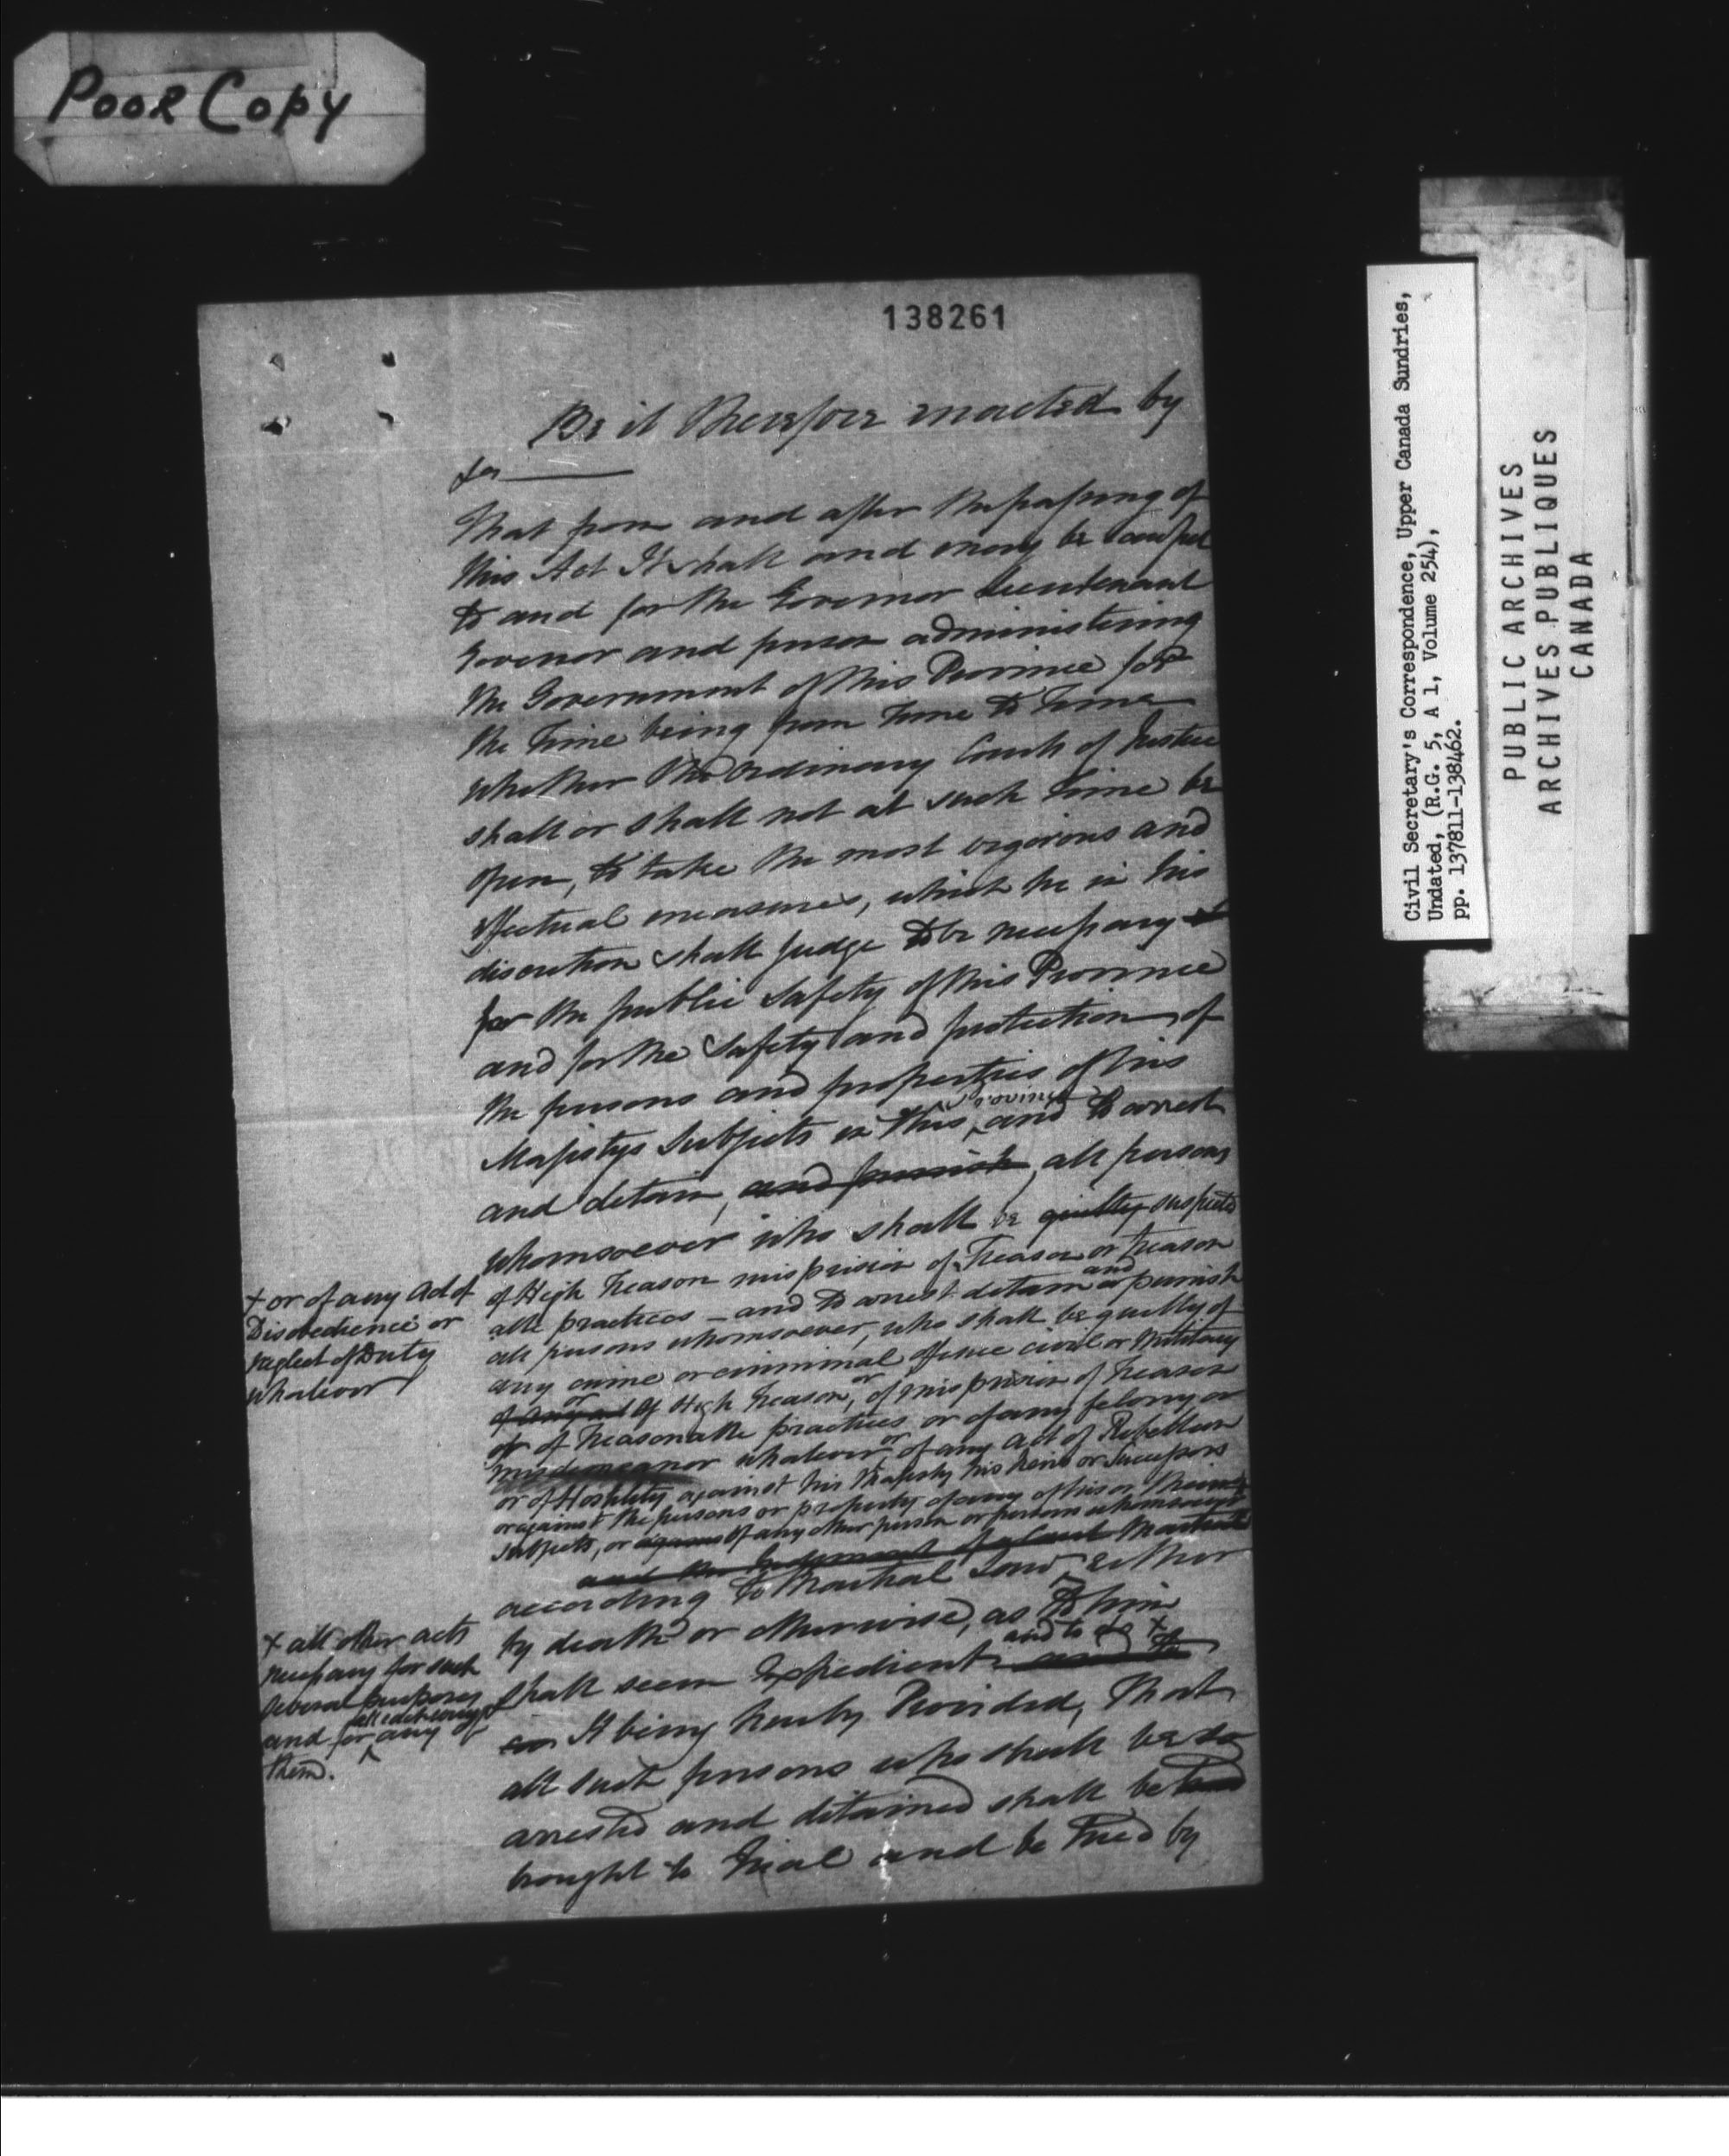 Poor Copy
138261
Be it Therefore enacted by
&c
That from and after the passing of
This Act It shall and may be lawful
to and for the Governor Lieutenant
Governor and person administering
the Government of this Province for
the Time being from Time to Time
whether the ordinary Courts of Justice
shall or shall not at such Time be
open, to take the most vigorous and
effectual measures, which he in his
discretion shall judge to be necessary
for the public Safety of this Province
and for the Safety and protection of
the persons and properties of his
Majestys Subjects in this Province and to arrest
and detain, and punish all persons
whomsoever who shall be guilty suspected
of High Treason misprision of Treason or treason
able practices – and to arrest detain and punish
all persons whomsoever, who shall be guilty of
any crime or criminal offence civil or military
of any act or of High Treason, or of misprision of Treason
or of Treasonable practices or of any felony or
misdemeanor whatever or of any act of Rebellion
or of Hostility against his Majesty his heirs or Successors
or against the persons or property of any of his or Their
subjects, or against of any other person or persons whomsoever
and the Judgement of a Court Martial
according to Martial Law, Either
by death or otherwise, as to him
shall seem Expedient and to do +
It being hereby Provided, That
all such persons who shall be so
arrested and detained shall be
brought to Trial and be Tried by
+ or of any Act of
Disobedience or
neglect of Duty
whatever
+ all other acts
necessary for such
several purposes
and for all & every of any of
them.
Civil Secretary's Correspondence, Upper Canada Sundries,
Undated, (R.G. 5, A 1, Volume 254),
pp. 137811-138462.
PUBLIC ARCHIVES
ARCHIVES PUBLIQUES
CANADA